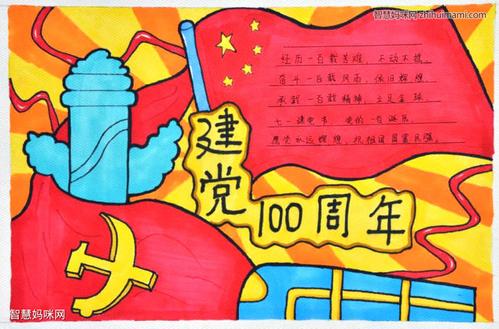 智慧妈咪网 zhihuimami.com
经历一百载苦难，不动不摇。
奋斗一百载风雨，依旧辉煌
承载一百载精神，立足全球。
七一建党节，党的一百诞辰。
愿党永远辉煌，祝祖国国富民强。
建党
100周年
智慧妈咪网